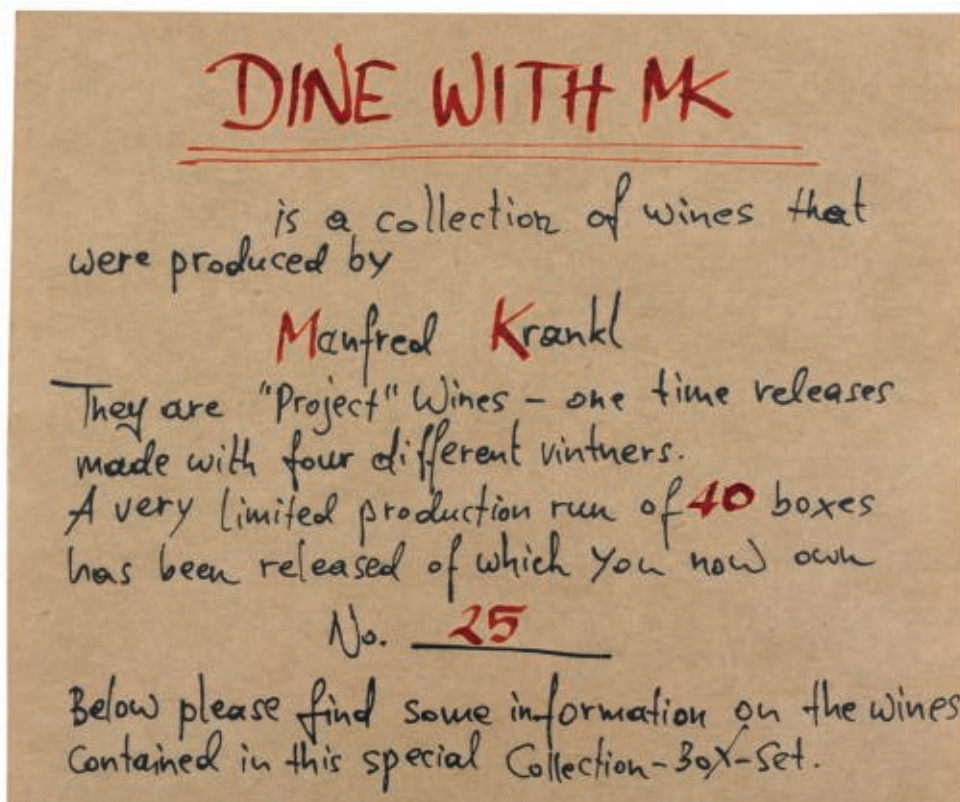 DINE WITH MK
is a collection of wines that
were produced by
Manfred Krankl
They are "Project" Wines - one time releases
made with four different vintners.
A very limited production run of 40 boxes
has been released of which you now own
No. 25
Below please find some information on the wines
Contained in this special Collection-Box-Set.